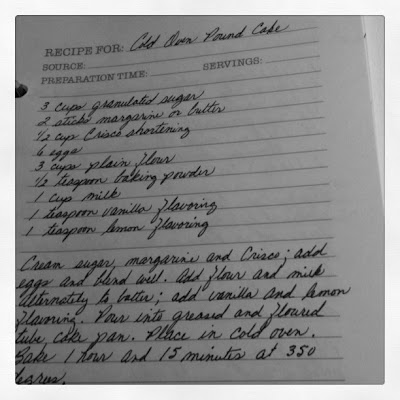 RECIPE FOR: Cold Oven Pound Cake
SOURCE:
PREPARATION TIME: SERVINGS:
3 cups granulated sugar
2 sticks margarine or butter
1/2 cup Crisco shortening
6 eggs
3 cups plain flour
1/2 teaspoon baking powder
1 cup milk
1 teaspoon vanilla flavoring
1 teaspoon lemon flavoring
Cream sugar, margarine and Crisco; add
eggs and blend well. Add flour and milk
alternately to batter; add vanilla and lemon
flavoring. Pour into greased and floured
tube cake pan. Place in cold oven.
Bake 1 hour and 15 minutes at 350
degrees.